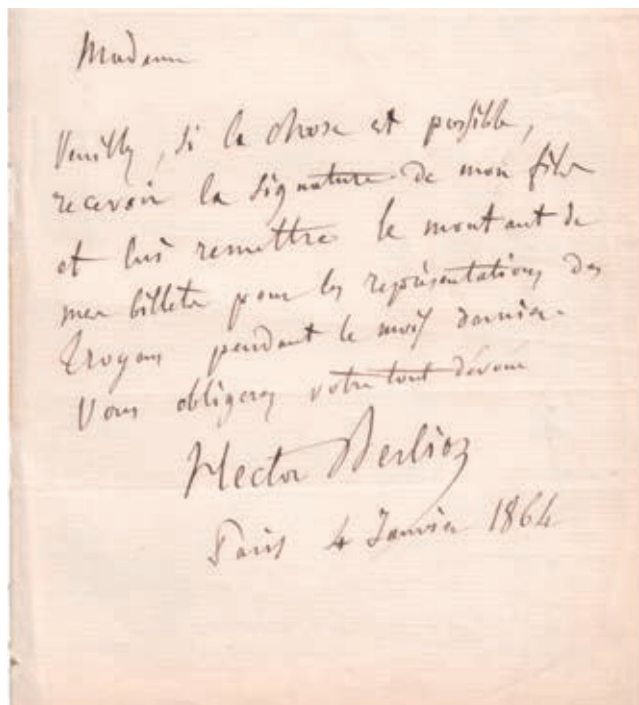 Madame
Veuillez, si la chose est possible,
recevoir la signature de mon fils
et lui remettre le montant de
mes billets pour les représentations des
Troyens pendant le mois dernier.
Vous obligerez votre tout dévoué
Hector Berlioz
Paris 4 Janvier 1864